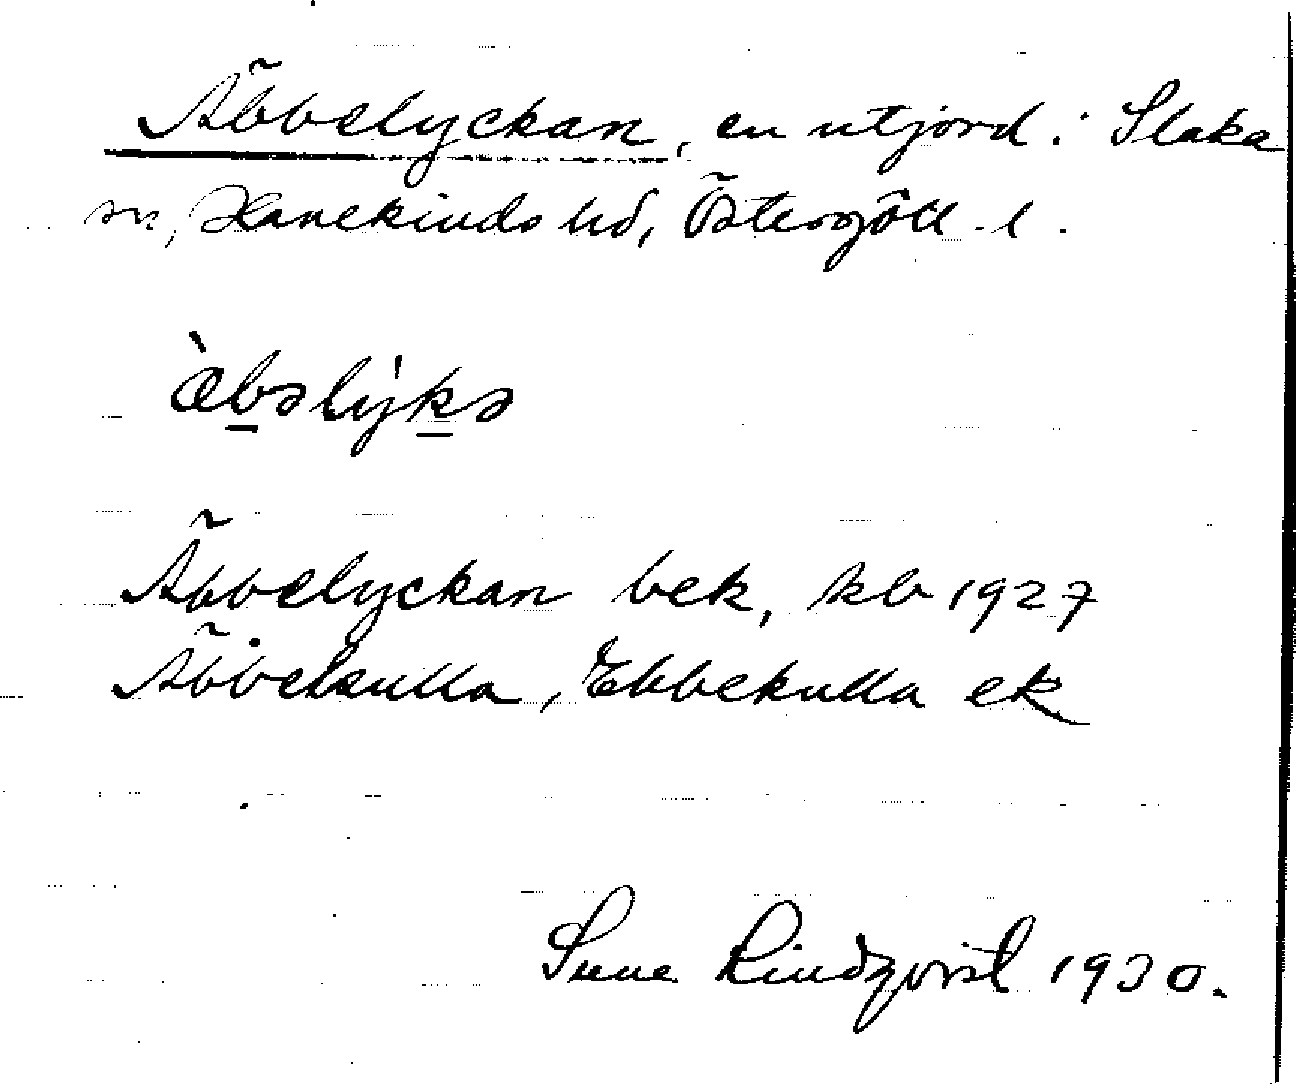 Äbbelyckan, en utjord i Slaka
sn, Hanekinds hd, Östergötl. l.
æ̀bəlykə
Äbbelyckan bek, kb 1927
Äbbekulla, Ebbekulla ek
Sune Lindqvist 1930.